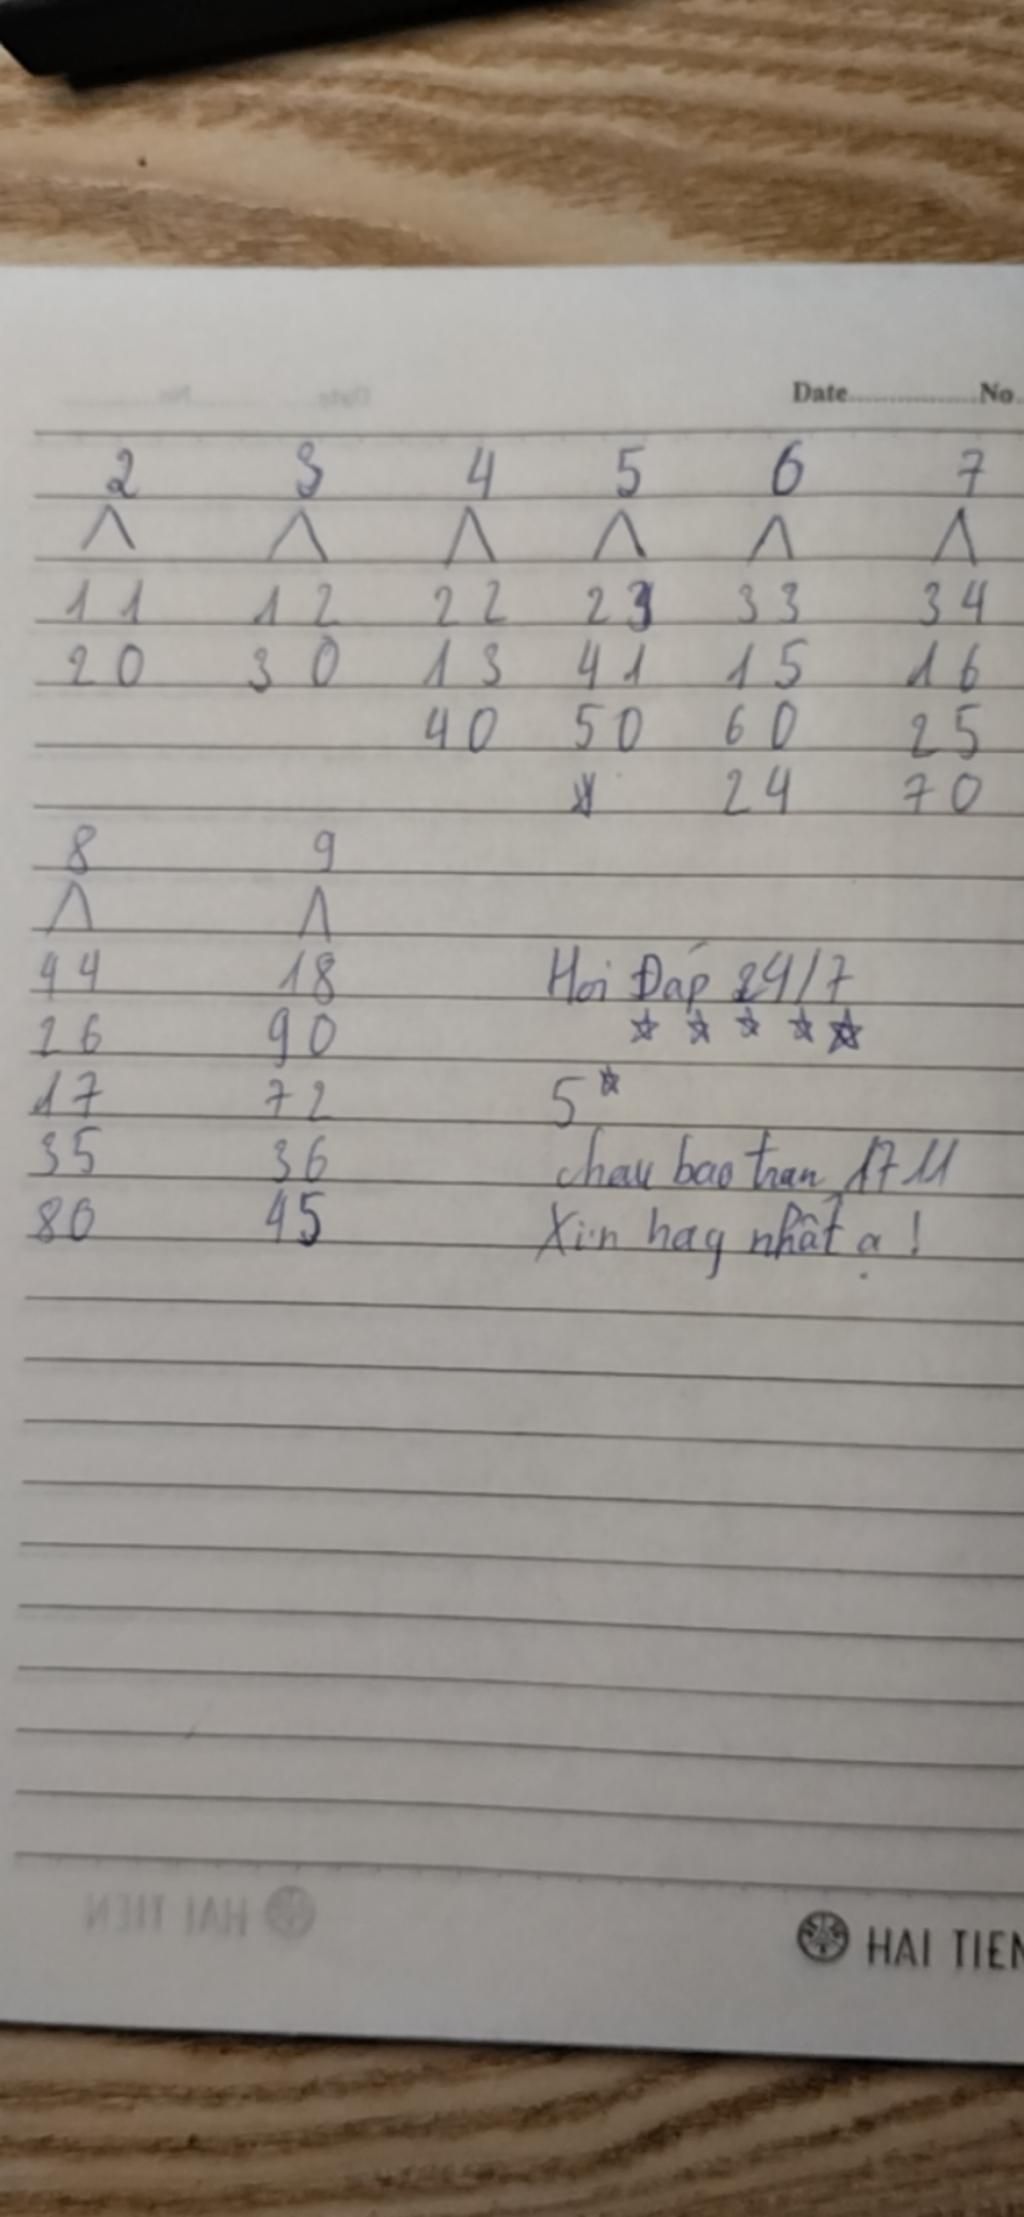 Date............No.
2 3 4 5 6 7
Λ Λ Λ Λ Λ Λ
11 12 22 23 33 34
20 30 13 41 15 16
40 50 60 25
24 70
8 9
Λ Λ
44 18
26 90
17 72
35 36
80 45
Hoi Đáp 24/7
☆ ☆ ☆ ☆ ☆
5☆
chau bao tran 1711
Xin hay nhất ạ!
HAI TIEN